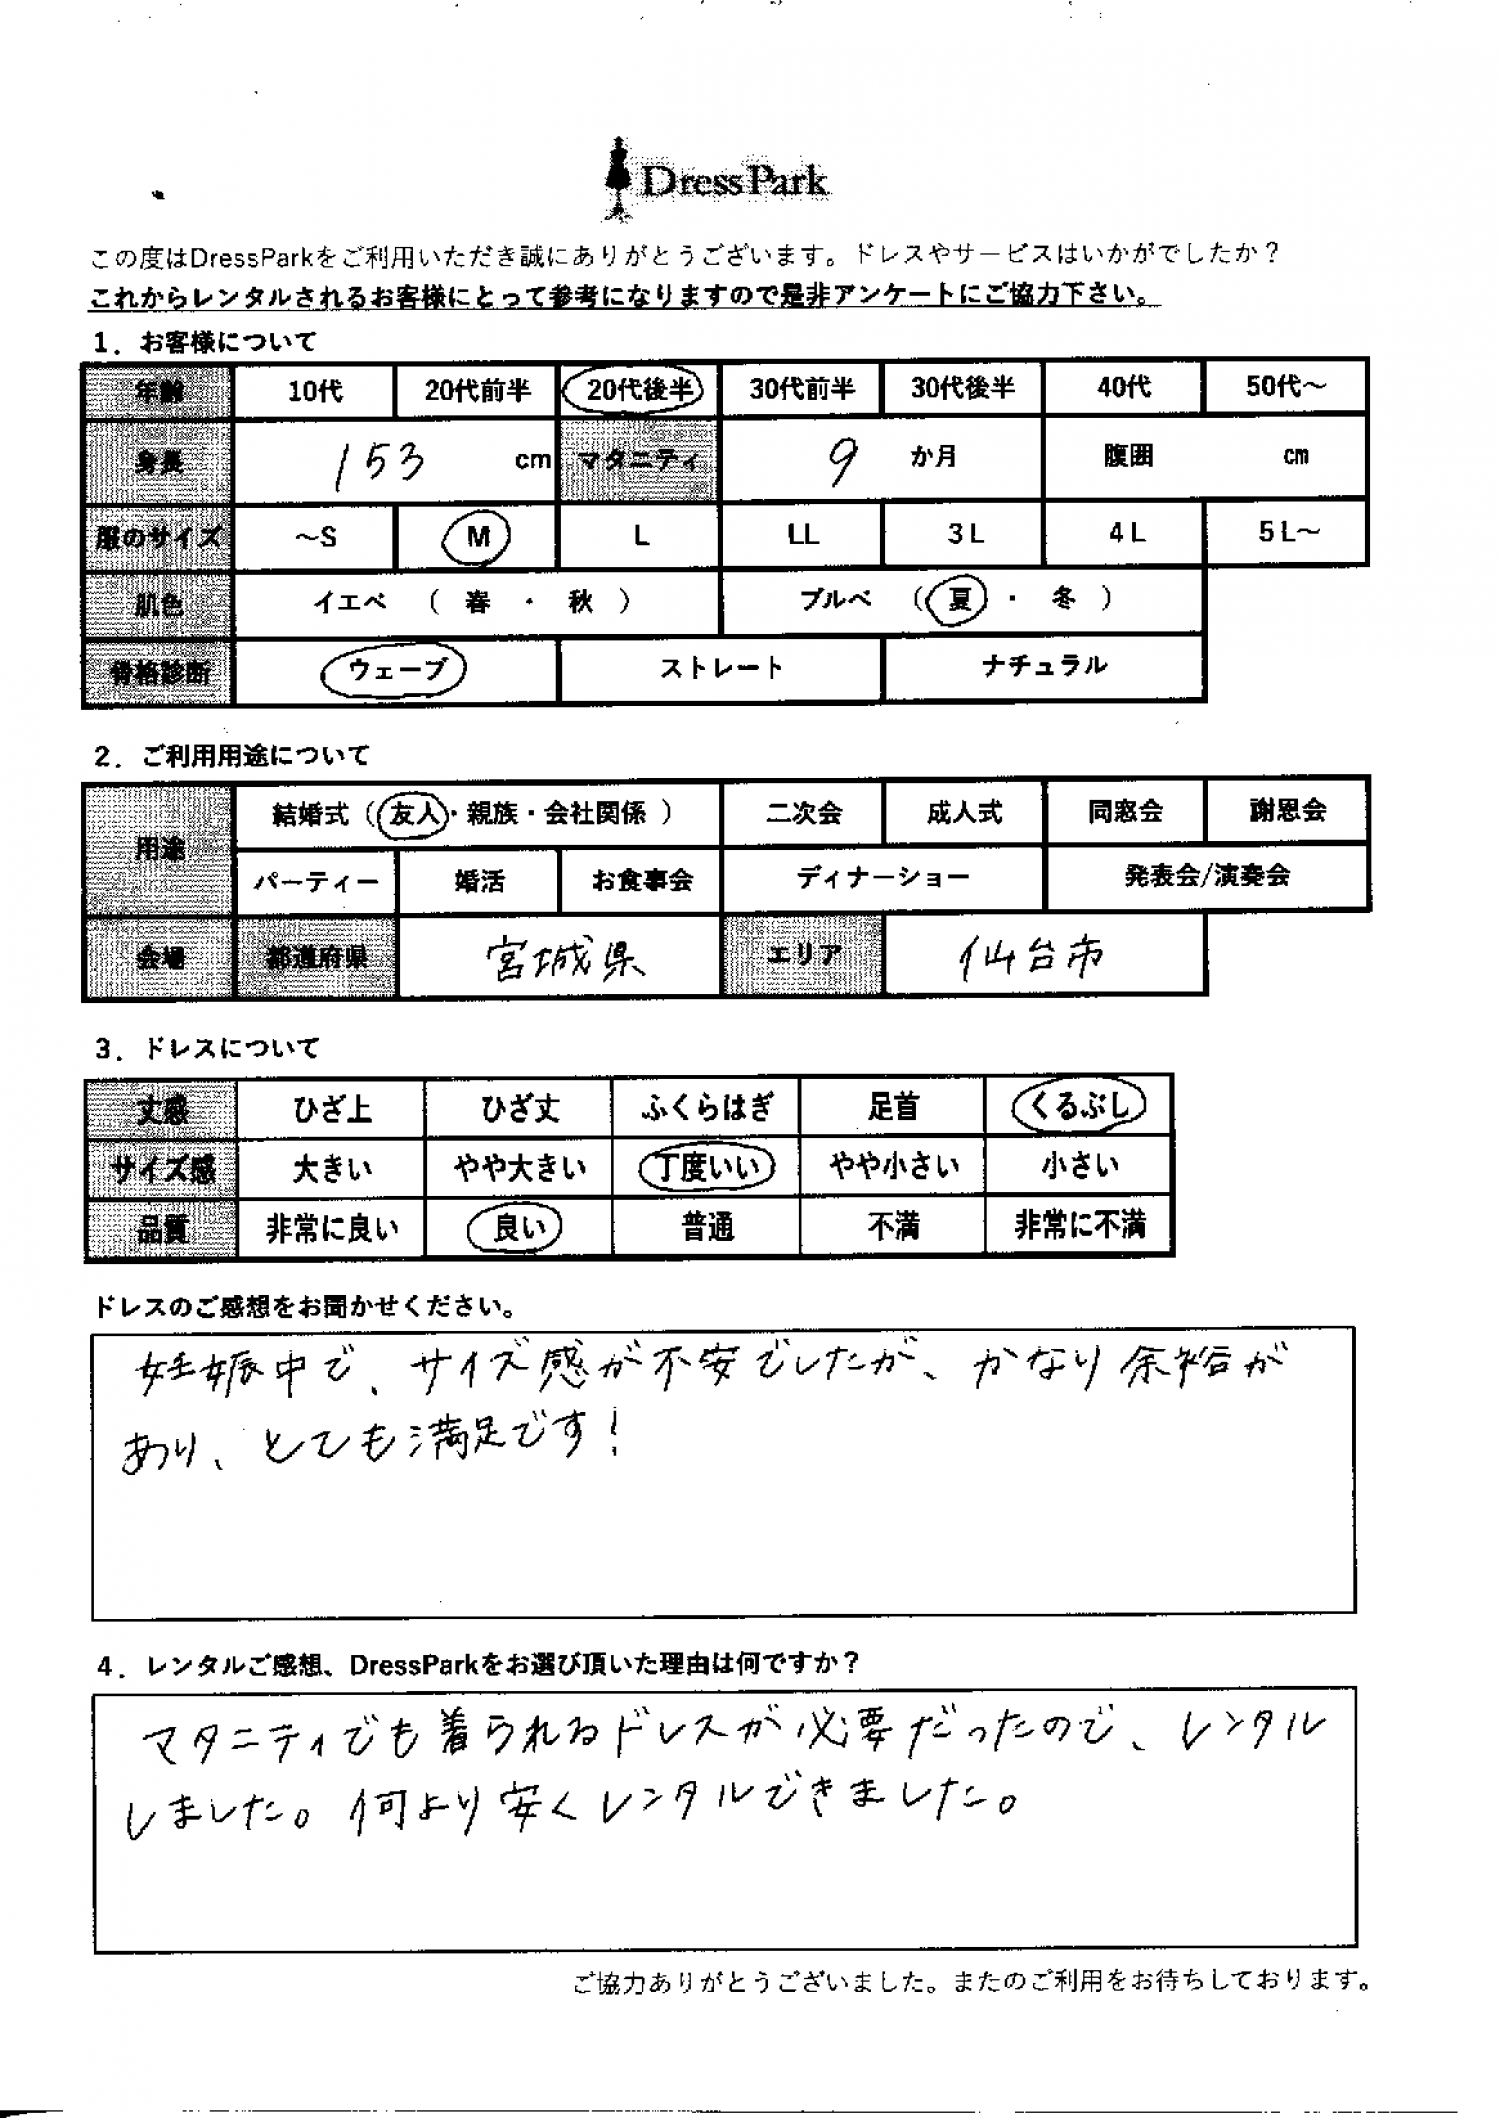 DressPark
この度はDressParkをご利用いただき誠にありがとうございます。ドレスやサービスはいかがでしたか？
これからレンタルされるお客様にとって参考になりますので是非アンケートにご協力下さい。
1．お客様について
年齢 10代 20代前半 20代後半 30代前半 30代後半 40代 50代～
身長 153 cm マタニティ 9 か月 腹囲 cm
服のサイズ ～S M L LL 3L 4L 5L～
肌色 イエベ （ 春 ・ 秋 ） ブルベ （ 夏 ・ 冬 ）
骨格診断 ウェーブ ストレート ナチュラル
2．ご利用用途について
用途 結婚式（ 友人・親族・会社関係 ） 二次会 成人式 同窓会 謝恩会
パーティー 婚活 お食事会 ディナーショー 発表会/演奏会
会場 都道府県 宮城県 エリア 仙台市
3．ドレスについて
丈感 ひざ上 ひざ丈 ふくらはぎ 足首 くるぶし
サイズ感 大きい やや大きい 丁度いい やや小さい 小さい
品質 非常に良い 良い 普通 不満 非常に不満
ドレスのご感想をお聞かせください。
妊娠中で、サイズ感が不安でしたが、かなり余裕が
あり、とても満足です！
4．レンタルご感想、DressParkをお選び頂いた理由は何ですか？
マタニティでも着られるドレスが必要だったので、レンタル
しました。何より安くレンタルできました。
ご協力ありがとうございました。またのご利用をお待ちしております。